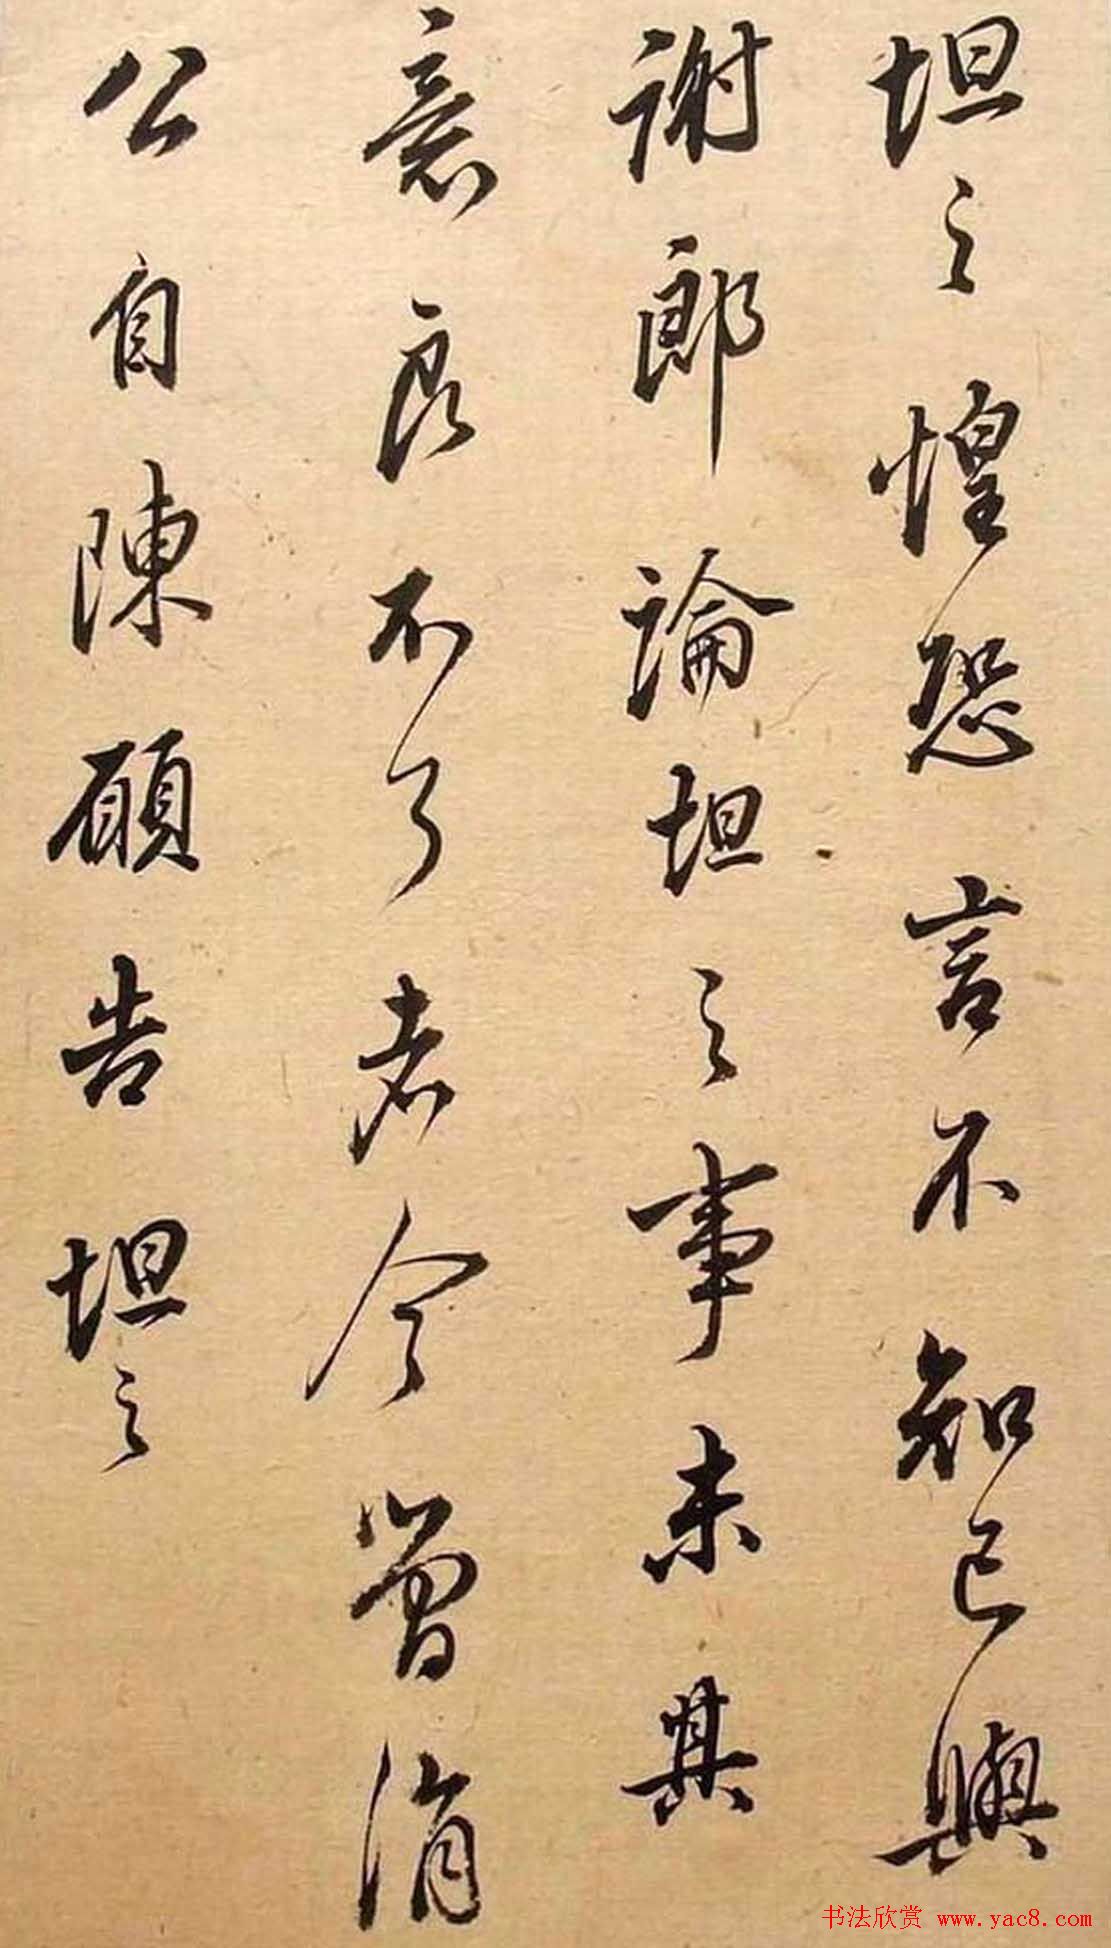 坦之惶恐言不知已與
謝郎論坦之事未其
意良不了者今當詣
公自陳願告坦之
书法欣赏 www.yac8.com